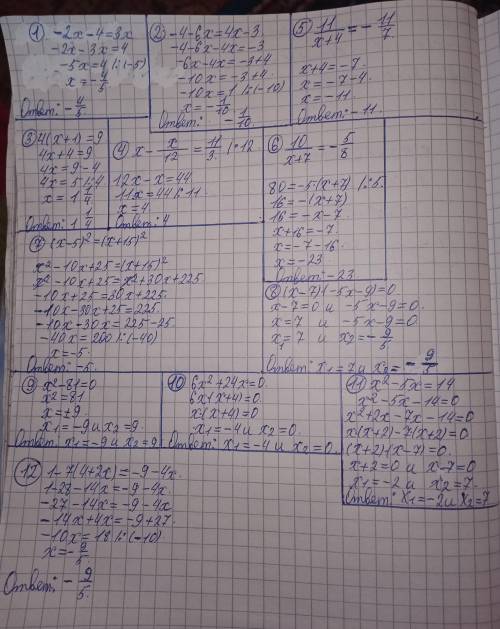 ① -2x-4=3x
-2x-3x=4
-5x=4 |:(-5)
x=-4/5
Ответ: -4/5.
② -4-6x=4x-3
-4-6x-4x=-3
-6x-4x=-3+4
-10x=-3+4
-10x=1 |:(-10)
x=-1/10
Ответ: -1/10.
⑤ 11/x+4=-11/7
x+4=-7
x=-7-4
x=-11
Ответ: -11.
③ 4(x+1)=9
4x+4=9
4x=9-4
4x=5 |:4
x=1 1/4
Ответ: 1 1/4
④ x-x/12=11/3 |·12
12x-x=44
11x=44 |:11
x=4
Ответ: 4
⑥ 10/x+7=-5/8
80=-5(x+7) |:5
16=-(x+7)
16=-x-7
x+16=-7
x=-7-16
x=-23
Ответ: -23.
⑦ (x-5)²=(x+15)²
x²-10x+25=(x+15)²
x²-10x+25=x²+30x+225
-10x+25=30x+225
-10x-30x+25=225
-10x-30x=225-25
-40x=200 |:(-40)
x=-5.
Ответ: -5.
⑧ (x-7)(-5x-9)=0
x-7=0 и -5x-9=0
x=7 и -5x-9=0
x₁=7 и x₂=-9/5
Ответ: x₁=7 и x₂=-9/5
⑨ x²-81=0
x²=81
x=±9.
x₁=-9 и x₂=9.
Ответ: x₁=-9 и x₂=9
⑩ 6x²+24x=0.
6x(x+4)=0
x(x+4)=0
x₁=-4 и x₂=0.
Ответ: x₁=-4 и x₂=0.
⑪ x²-5x=14
x²-5x-14=0
x²+2x-7x-14=0
x(x+2)-7(x+2)=0
(x+2)(x-7)=0
x+2=0 и x-7=0
x₁=-2 и x₂=7.
Ответ: x₁=-2 и x₂=7
⑫ 1-7(4+2x)=-9-4x.
1-28-14x=-9-4x
-27-14x=-9-4x
-14x+4x=-9+27
-10x=18 |:(-10)
x=-9/5
Ответ: -9/5.